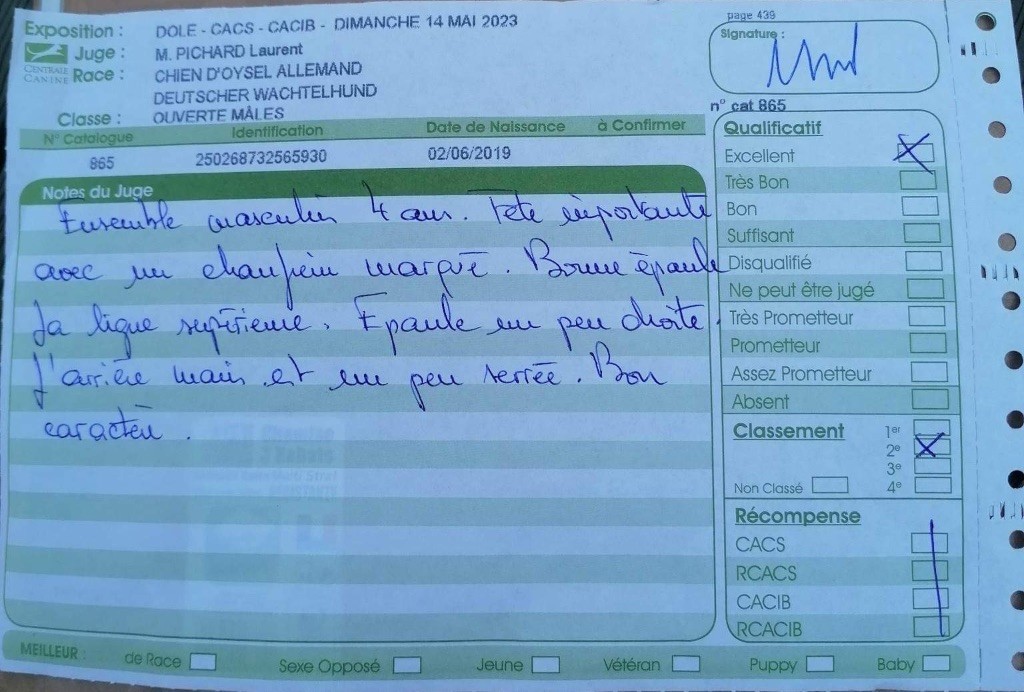 Exposition : DOLE - CACS - CACIB - DIMANCHE 14 MAI 2023
Juge : M. PICHARD Laurent
CENTRALE CANINE
Race : CHIEN D'OYSEL ALLEMAND
DEUTSCHER WACHTELHUND
Classe : OUVERTE MÂLES
N° Catalogue Identification Date de Naissance à Confirmer
865 250268732565930 02/06/2019
Notes du Juge
Ensemble masculin 4 ans. Tête importante
avec un chanfrein marqué. Bonne épaule
la ligne supérieure. Epaule un peu droite.
L'arrière main est un peu serrée. Bon
caractère.
page 439
Signature :
n° cat 865
Qualificatif
Excellent
Très Bon
Bon
Suffisant
Disqualifié
Ne peut être jugé
Très Prometteur
Prometteur
Assez Prometteur
Absent
Classement
1er
2e
3e
Non Classé 4e
Récompense
CACS
RCACS
CACIB
RCACIB
MEILLEUR : de Race Sexe Opposé Jeune Vétéran Puppy Baby